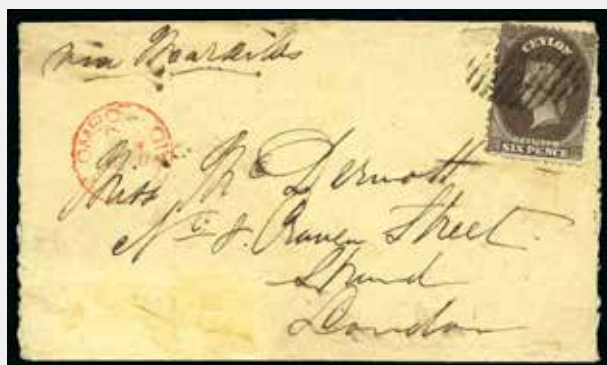 via Marseilles
CEYLON
POSTAGE
SIX PENCE
Miss Mc Dermott
No 8. Craven Street
Strand
London